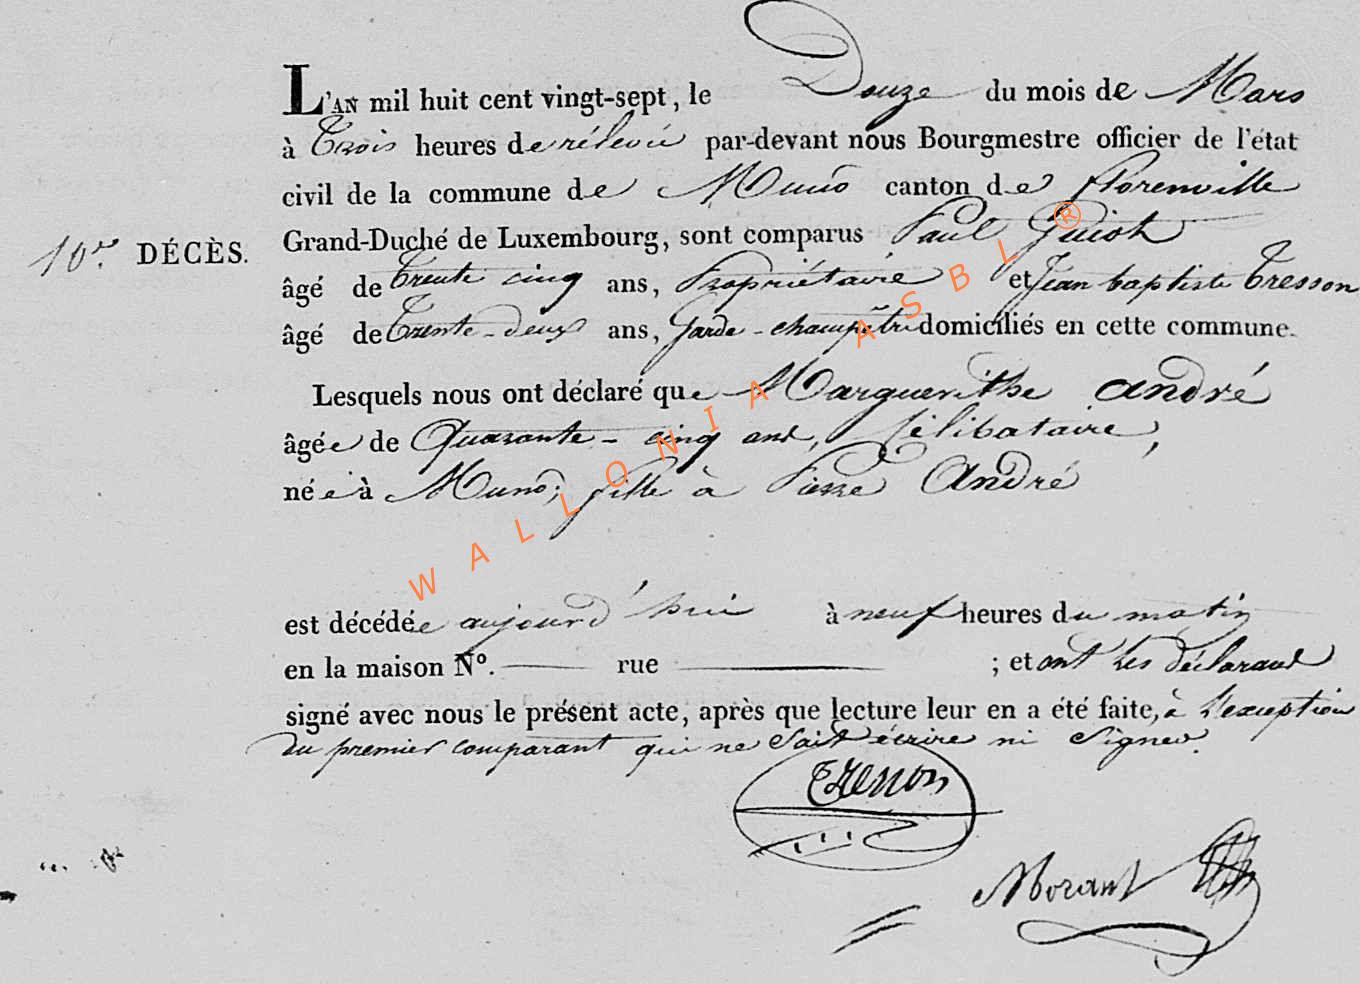 L'AN mil huit cent vingt-sept, le Douze du mois de Mars
à Trois heures de rélevée par-devant nous Bourgmestre officier de l'état
civil de la commune de Muno canton de Florenville
10e. DÉCÈS. Grand-Duché de Luxembourg, sont comparus Paul Guiot
âgé de Trente cinq ans, Propriétaire et Jean baptiste Tresson
âgé de Trente-deux ans, Garde-champêtre domiciliés en cette commune.
Lesquels nous ont déclaré que Marguerithe André
âgée de Quarante-cinq ans, Célibataire,
née à Muno; fille à Pierre André
est décédée aujourd'hui à neuf heures du matin
en la maison No. rue ; et ont les déclarans
signé avec nous le présent acte, après que lecture leur en a été faite, à l'exception
du premier comparant qui ne Sait écrire ni Signer.
Tresson
Morant
WALLONIA ASBL ®